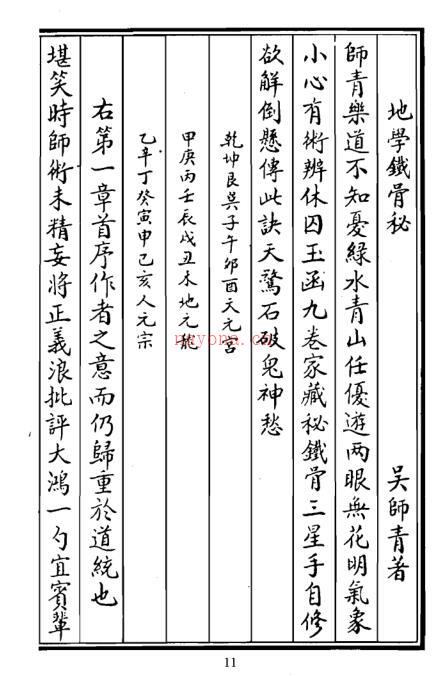 地學鐵骨秘 吴師青著
師青樂道不知憂綠水青山任優遊两眼無花明氣象
小心有術辨休囚玉函九卷家藏秘鐵骨三星手自修
欲解倒懸傳此訣天驚石破鬼神愁
乾坤艮巽子午卯酉天元宫
甲庚丙壬辰戌丑未地元龍
乙辛丁癸寅申己亥人元宗
右第一章首序作者之意而仍歸重於道統也
堪笑時師術未精妄將正義浪批評大鴻一勺宜賓輩
nayona.cn
11